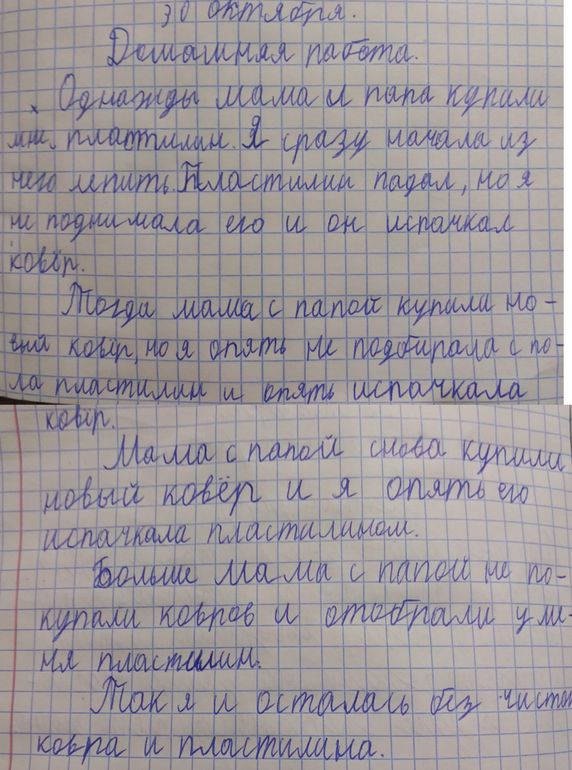 30 октября.
Домашняя работа.
Однажды мама и папа купили
мне пластилин. Я сразу начала из
него лепить. Пластилин падал, но я
не поднимала его и он испачкал
ковёр.
Тогда мама с папой купили но-
вый ковёр, но я опять не подбирала с по-
ла пластилин и опять испачкала
ковёр.
Мама с папой снова купили
новый ковёр и я опять его
испачкала пластилином.
Больше мама с папой не по-
купали ковров и отобрали у ме-
ня пластилин.
Так я и осталась без
ковра и пластилина.